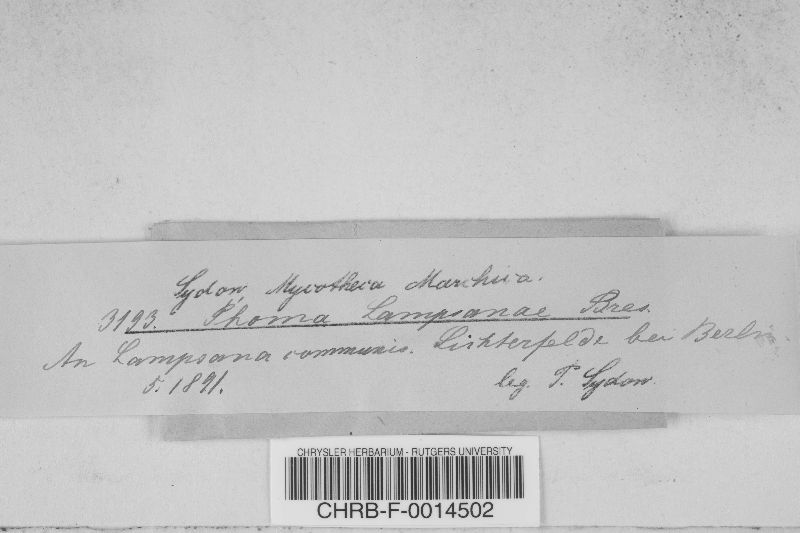 Sydow, Mycotheca Marchica.
3193. Phoma Lampsanae Bres.
An Lampsana communis. Lichterfelde bei Berlin.
5. 1891. leg. P. Sydow.
CHRYSLER HERBARIUM - RUTGERS UNIVERSITY
CHRB-F-0014502